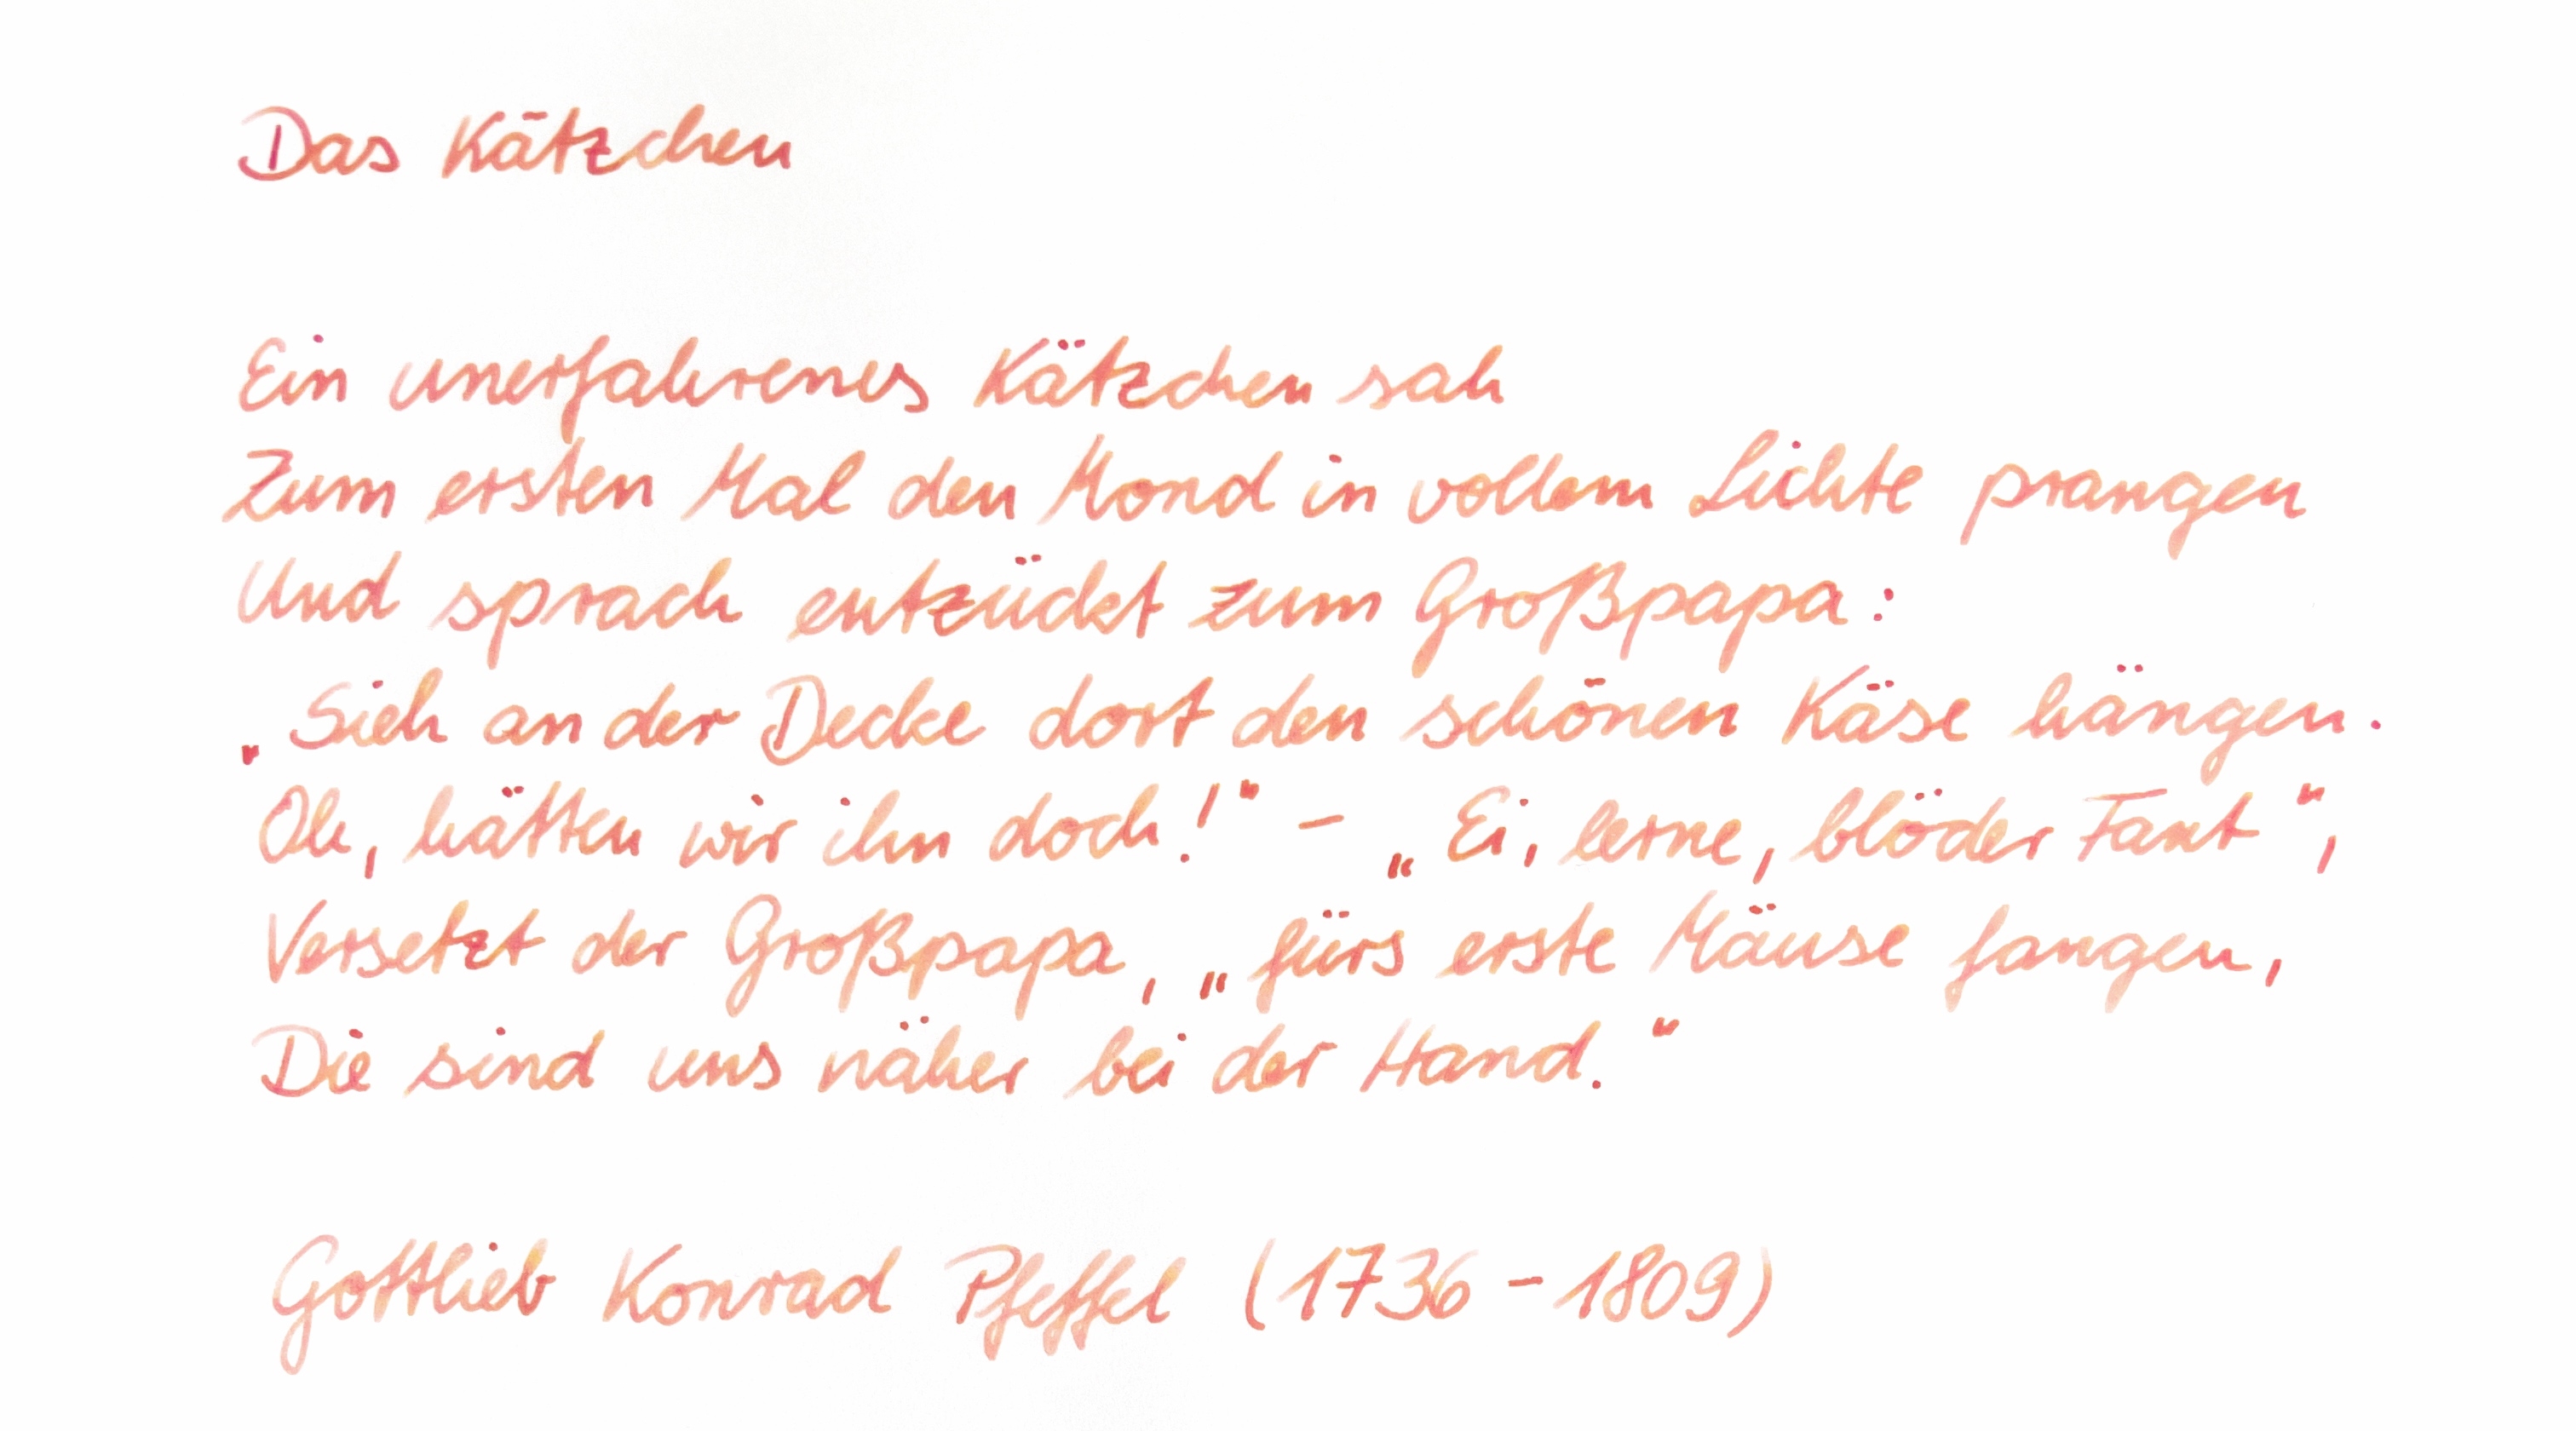 Das Kätzchen
Ein unerfahrenes Kätzchen sah
Zum ersten Mal den Mond in vollem Lichte prangen
Und sprach entzückt zum Großpapa:
„Sieh an der Decke dort den schönen Käse hängen.
Oh, hätten wir ihn doch!“ – „Ei, lerne, blöder Fant“,
Versetzt der Großpapa, „fürs erste Mäuse fangen,
Die sind uns näher bei der Hand.“
Gottlieb Konrad Pfeffel (1736 – 1809)